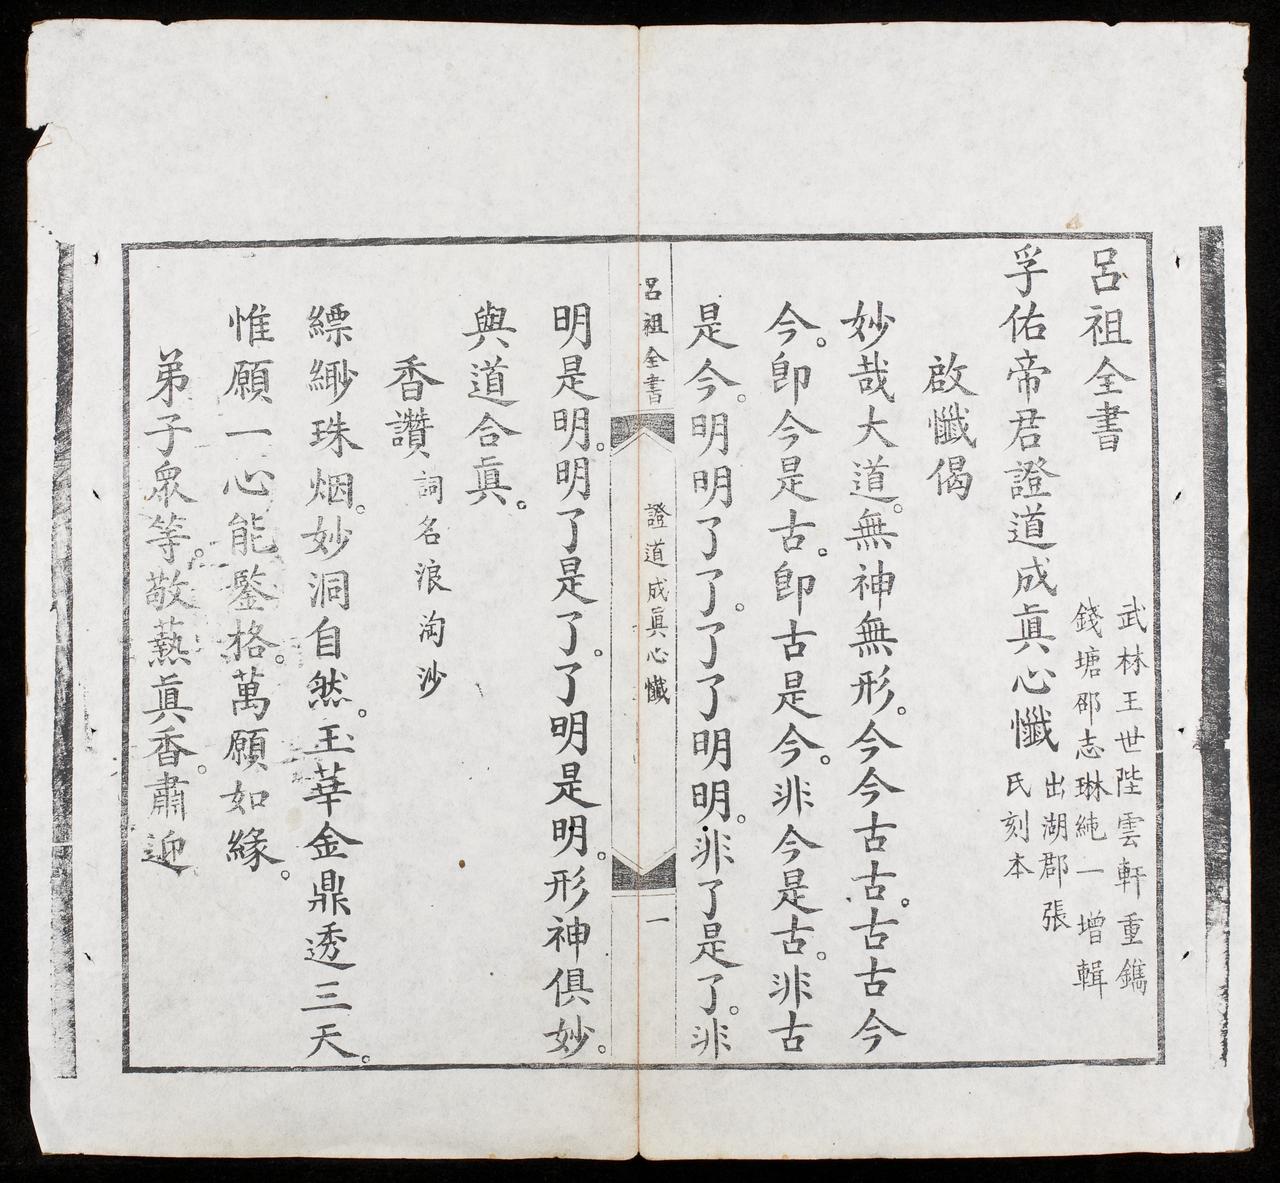 呂祖全書
武林王世陛雲軒重鐫
錢塘邵志琳純一增輯
孚佑帝君證道成眞心懺
出湖郡張
氏刻本
啟懺偈
妙哉大道。無神無形。今今古古。古古今
今。卽今是古。卽古是今。非今是古。非古
是今。明明了了。了了明明。非了是了。非
呂祖全書
證道成眞心懺
一
明是明。明了是了。了明是明。形神俱妙。
與道合眞。
香讚
詞名浪淘沙
縹緲珠烟。妙洞自然。玉華金鼎透三天。
惟願一心能鑒格。萬願如緣。
弟子衆等。敬爇眞香。肅迎